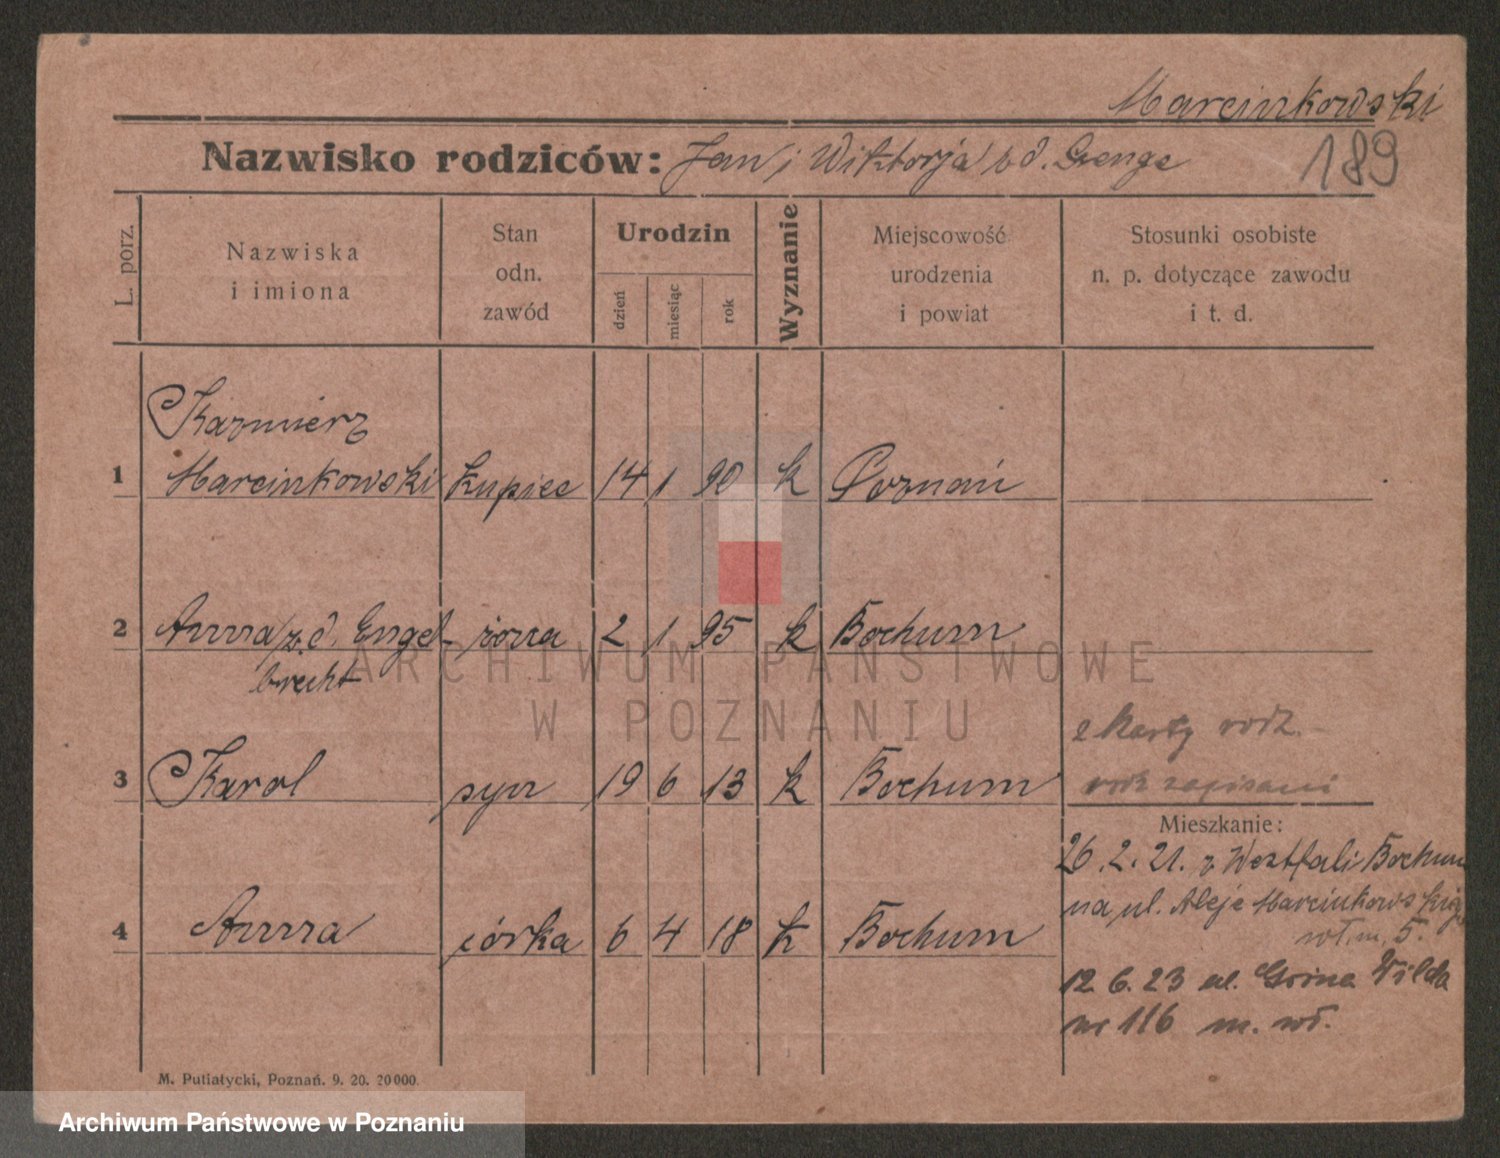 Marcinkowski
Nazwisko rodziców: Jan i Wiktorja z d. Genge
189
L. porz.
Nazwiska
i imiona
Stan
odn.
zawód
Urodzin
dzień
miesiąc
rok
Wyznanie
Miejscowość
urodzenia
i powiat
Stosunki osobiste
n. p. dotyczące zawodu
i t. d.
Kazmierz
1 Marcinkowski kupiec 14 1 90 k Poznań
2 Anna z d. Engel- żona 2 1 95 k Bochum
brecht
2 karty rodz.
3 Karol syn 19 6 13 k Bochum
zapisani
Mieszkanie:
26.2.21. z Westfali Bochum
na ul. Aleje Marcinkowskieg
4 Anna córka 6 4 18 k Bochum
wł. m. 5.
12.6.23 ul. Górna Wilda
nr 116 m. wł.
M. Putiatycki, Poznań. 9. 20. 20 000.
ARCHIWUM PAŃSTWOWE
W POZNANIU
Archiwum Państwowe w Poznaniu